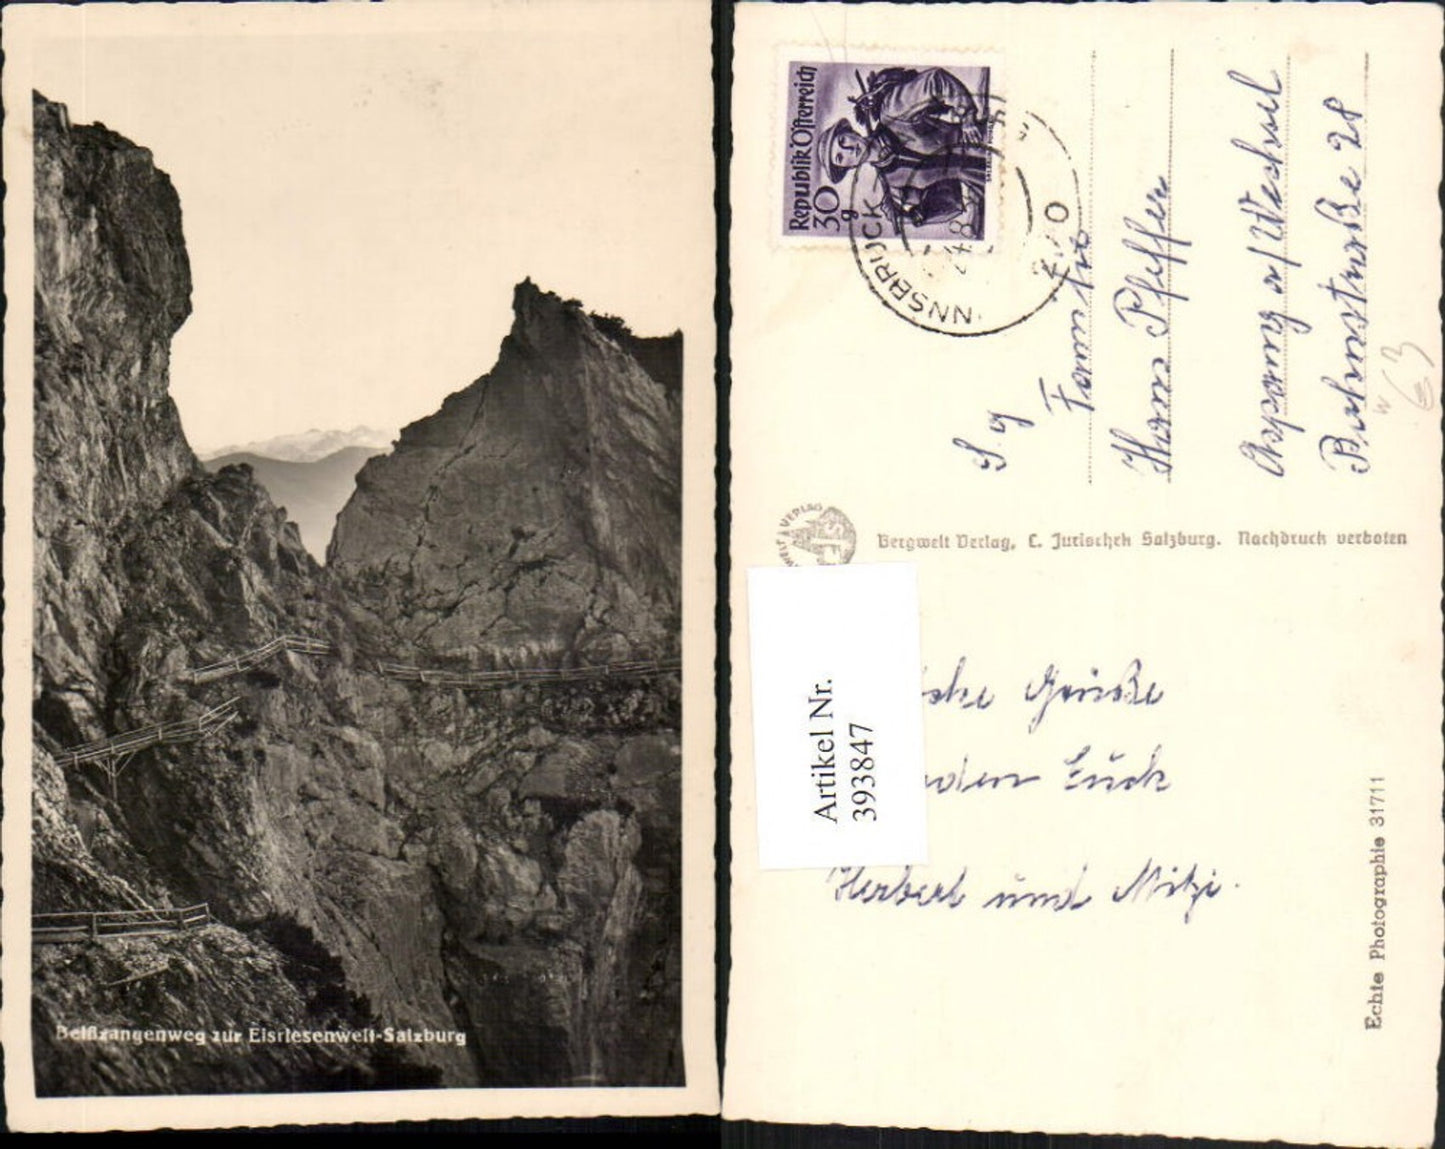 Beißzangenweg zur Eisriesenwelt-Salzburg
Republik Österreich
30
g
INNSBRUCK
S. g
Familie
Hans Pfeffer
Aspang a/Wechsel
Bahnstraße 28
63
VERLAG
Bergwelt Verlag, C. Jurischek Salzburg. Nachdruck verboten
Artikel Nr.
393847
Grüße
Herbert und Mitzi.
Echte Photographie 31711